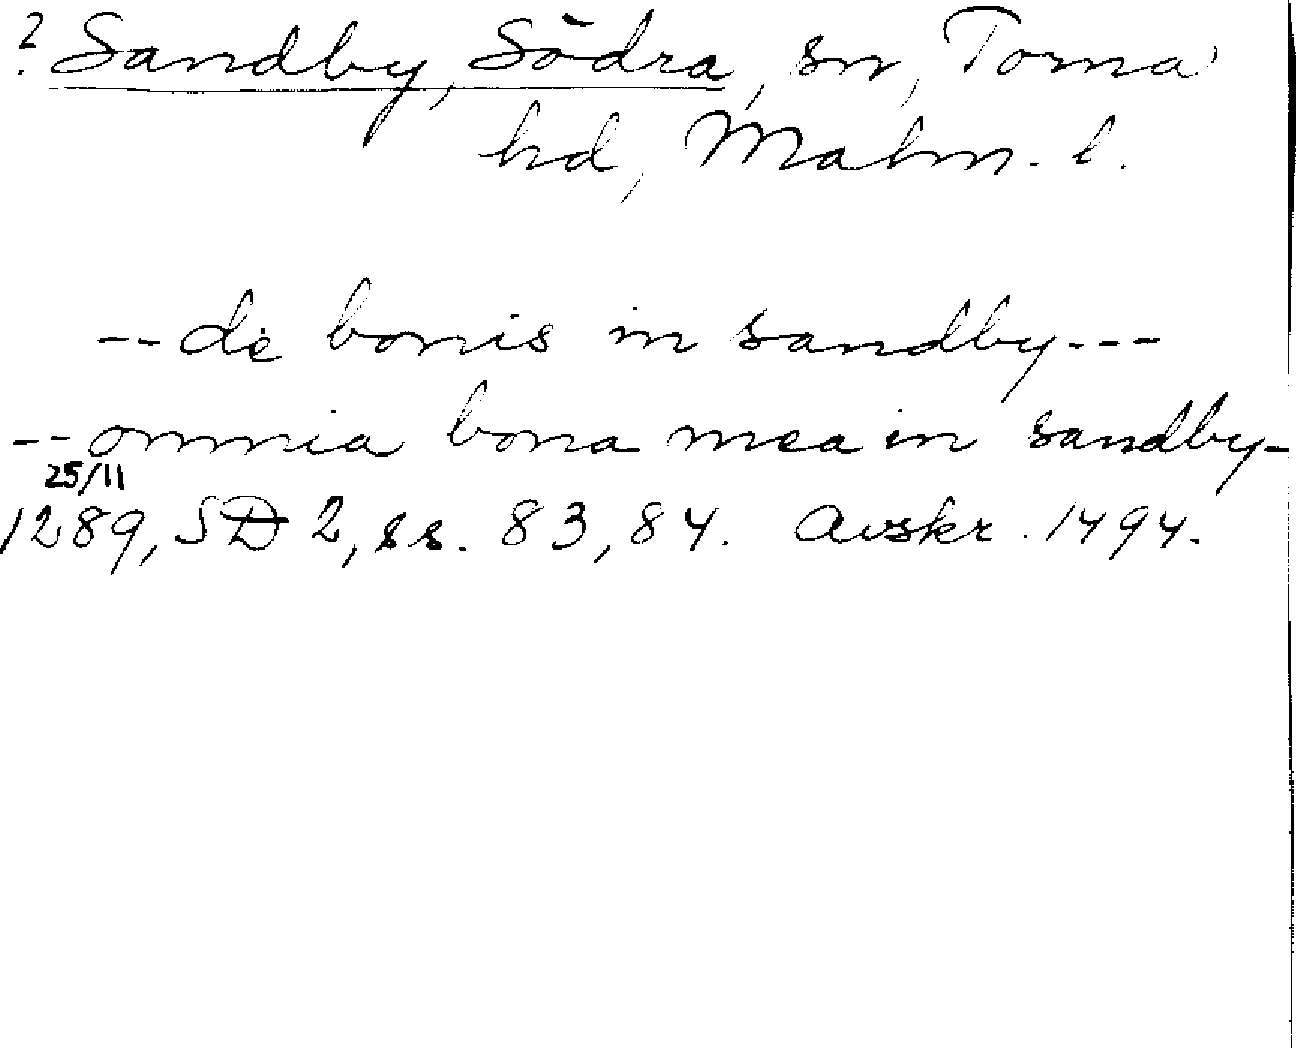 ? Sandby, Södra, sn, Torna
hd, Malm. l.
-- de bonis in sandby ---
-- omnia bona mea in sandby -
25/11
1289, SD 2, ss. 83, 84. Avskr. 1494.